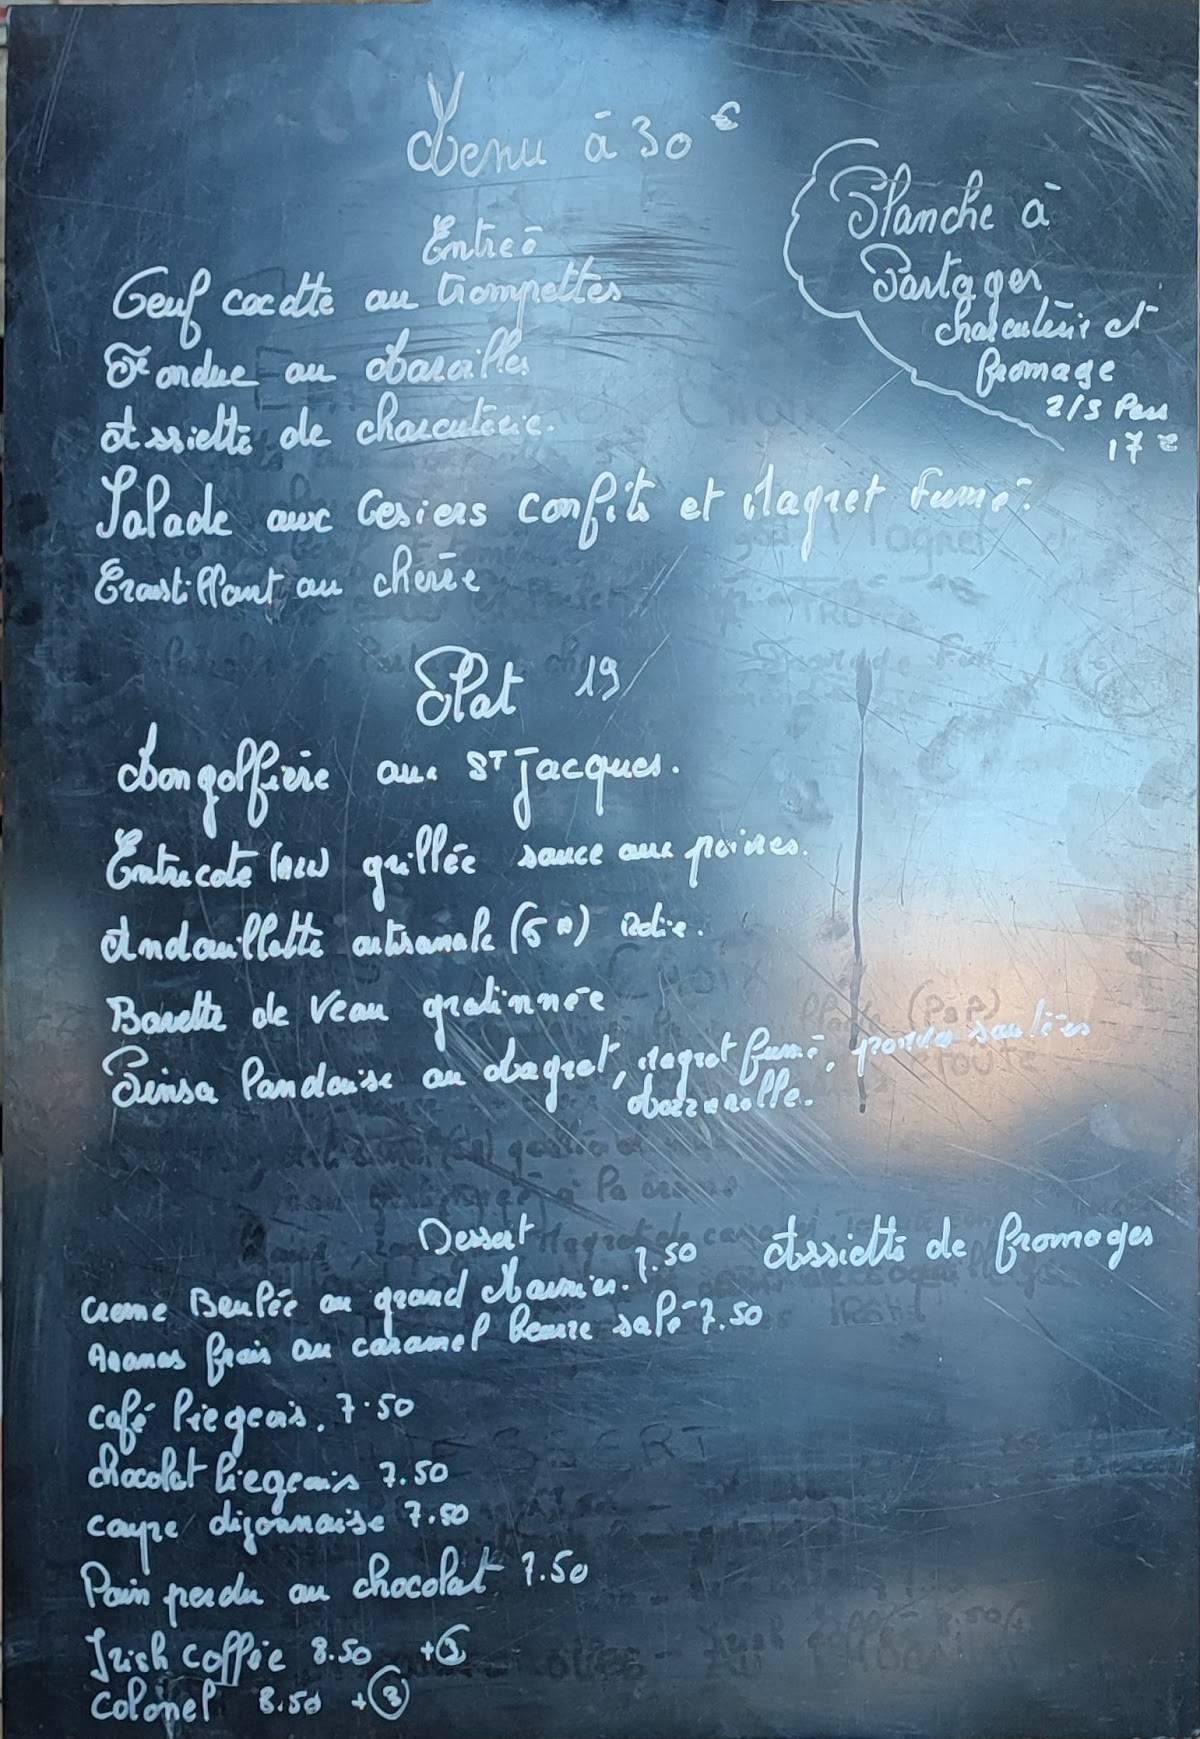 Menu à 30€
Planche à
Partager
charcuterie et
fromage
2/3 Pers
17€
Entrée
Oeuf cocotte au trompettes
Fondue au Maroilles
Assiette de charcuterie.
Salade avec Gesiers confits et Magret fumé.
Croustillant au chèvre
Plat 19
Mongolfière aux St Jacques.
Entrecote grillée sauce aux poivres.
Andouillette artisanale (5A) rotie.
Bavette de Veau gratinnée
Pinsa landaise au Magret, Magret fumé, pommes sautées
Mozzarelle.
Dessert
Assiette de fromages
creme Brulée au grand Marnier. 7.50
Ananas frais au caramel beurre salé 7.50
café liegeois. 7.50
chocolat liegeois 7.50
coupe dijonnaise 7.50
Pain perdu au chocolat 7.50
Irish coffee 8.50 +3
colonel 8.50 +3